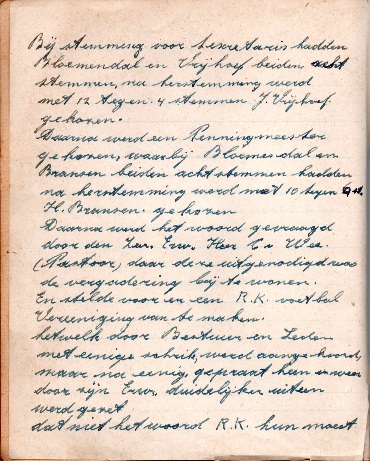 Bij stemming voor secretaris hadden
Bloemendal en Vrijhoef beiden acht
stemmen, na herstemming werd
met 12 tegen 4 stemmen J. Vrijhoef
gekozen.
Daarna werd een Penningmeester
gekozen, waarbij Bloemendal en
Bransen beiden acht stemmen hadden
na herstemming werd met 10 tegen
H. Bransen. gekozen
Daarna werd het woord gevraagd
door den Zeer. Eerw. Heer
(Pastoor) daar deze uitgenodigd was
de vergadering bij te wonen.
En stelde voor er een R.K. voetbal
Vereeniging van te maken.
hetwelk door Bestuur en Leden
met eenige schrik, werd aangehoord,
maar na eenig, gepraat heen en weer
door zijn Eerw. duidelijker uiteen
werd gezet
dat niet het woord R.K. hun moest